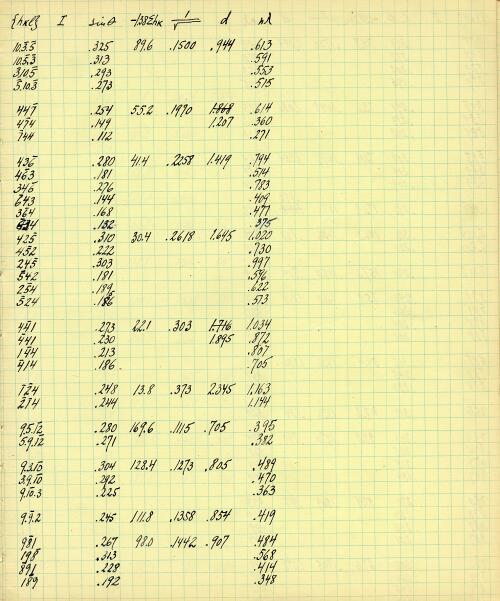 {hkl} I sinθ -138Σhk 1/√ d nλ
10.3.5 .325 89.6 .1500 .944 .613
10.5.3 .313 .591
3.10.5 .293 .553
5.10.3 .273 .515
447 .254 55.2 .1990 1.207 .614
474 .149 .360
744 .112 .271
436 .280 41.4 .2258 1.419 .794
463 .181 .514
346 .276 .783
643 .144 .409
364 .168 .477
634 .132 .375
425 .310 30.4 .2618 1.645 1.020
452 .222 .730
245 .303 .997
542 .181 .596
254 .189 .622
524 .186 .573
441 .273 22.1 .303 1.716 1.034
441 .230 1.895 .872
144 .213 .807
414 .186 .705
124 .248 13.8 .373 2.345 1.163
214 .244 1.144
9.5.12 .280 169.6 .1115 .705 .395
5.9.12 .271 .382
9.3.10 .304 128.4 .1273 .805 .489
3.9.10 .292 .470
9.10.3 .225 .363
9.9.2 .245 111.8 .1358 .854 .419
981 .267 98.0 .1442 .907 .484
198 .313 .568
891 .228 .414
189 .192 .348